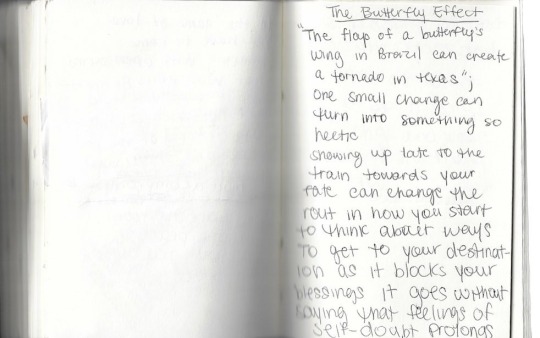 The Butterfly Effect
"The flap of a butterfly's
wing in Brazil can create
a tornado in texas";
one small change can
turn into something so
hectic
showing up late to the
train towards your
fate can change the
rout in how you start
to think about ways
to get to your destinat-
ion as it blocks your
blessings it goes without
saying that feelings of
self-doubt prolongs